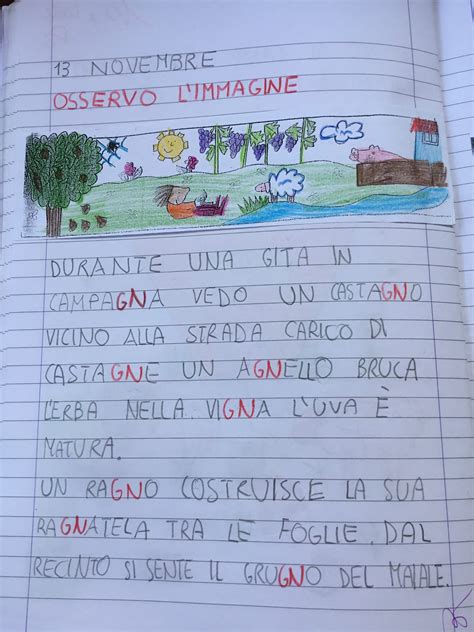 13 NOVEMBRE
OSSERVO L'IMMAGINE
DURANTE UNA GITA IN
CAMPAGNA VEDO UN CASTAGNO
VICINO ALLA STRADA CARICO DI
CASTAGNE UN AGNELLO BRUCA
L'ERBA NELLA VIGNA L'UVA È
MATURA.
UN RAGNO COSTRUISCE LA SUA
RAGNATELA TRA LE FOGLIE. DAL
RECINTO SI SENTE IL GRUGNO DEL MAIALE.